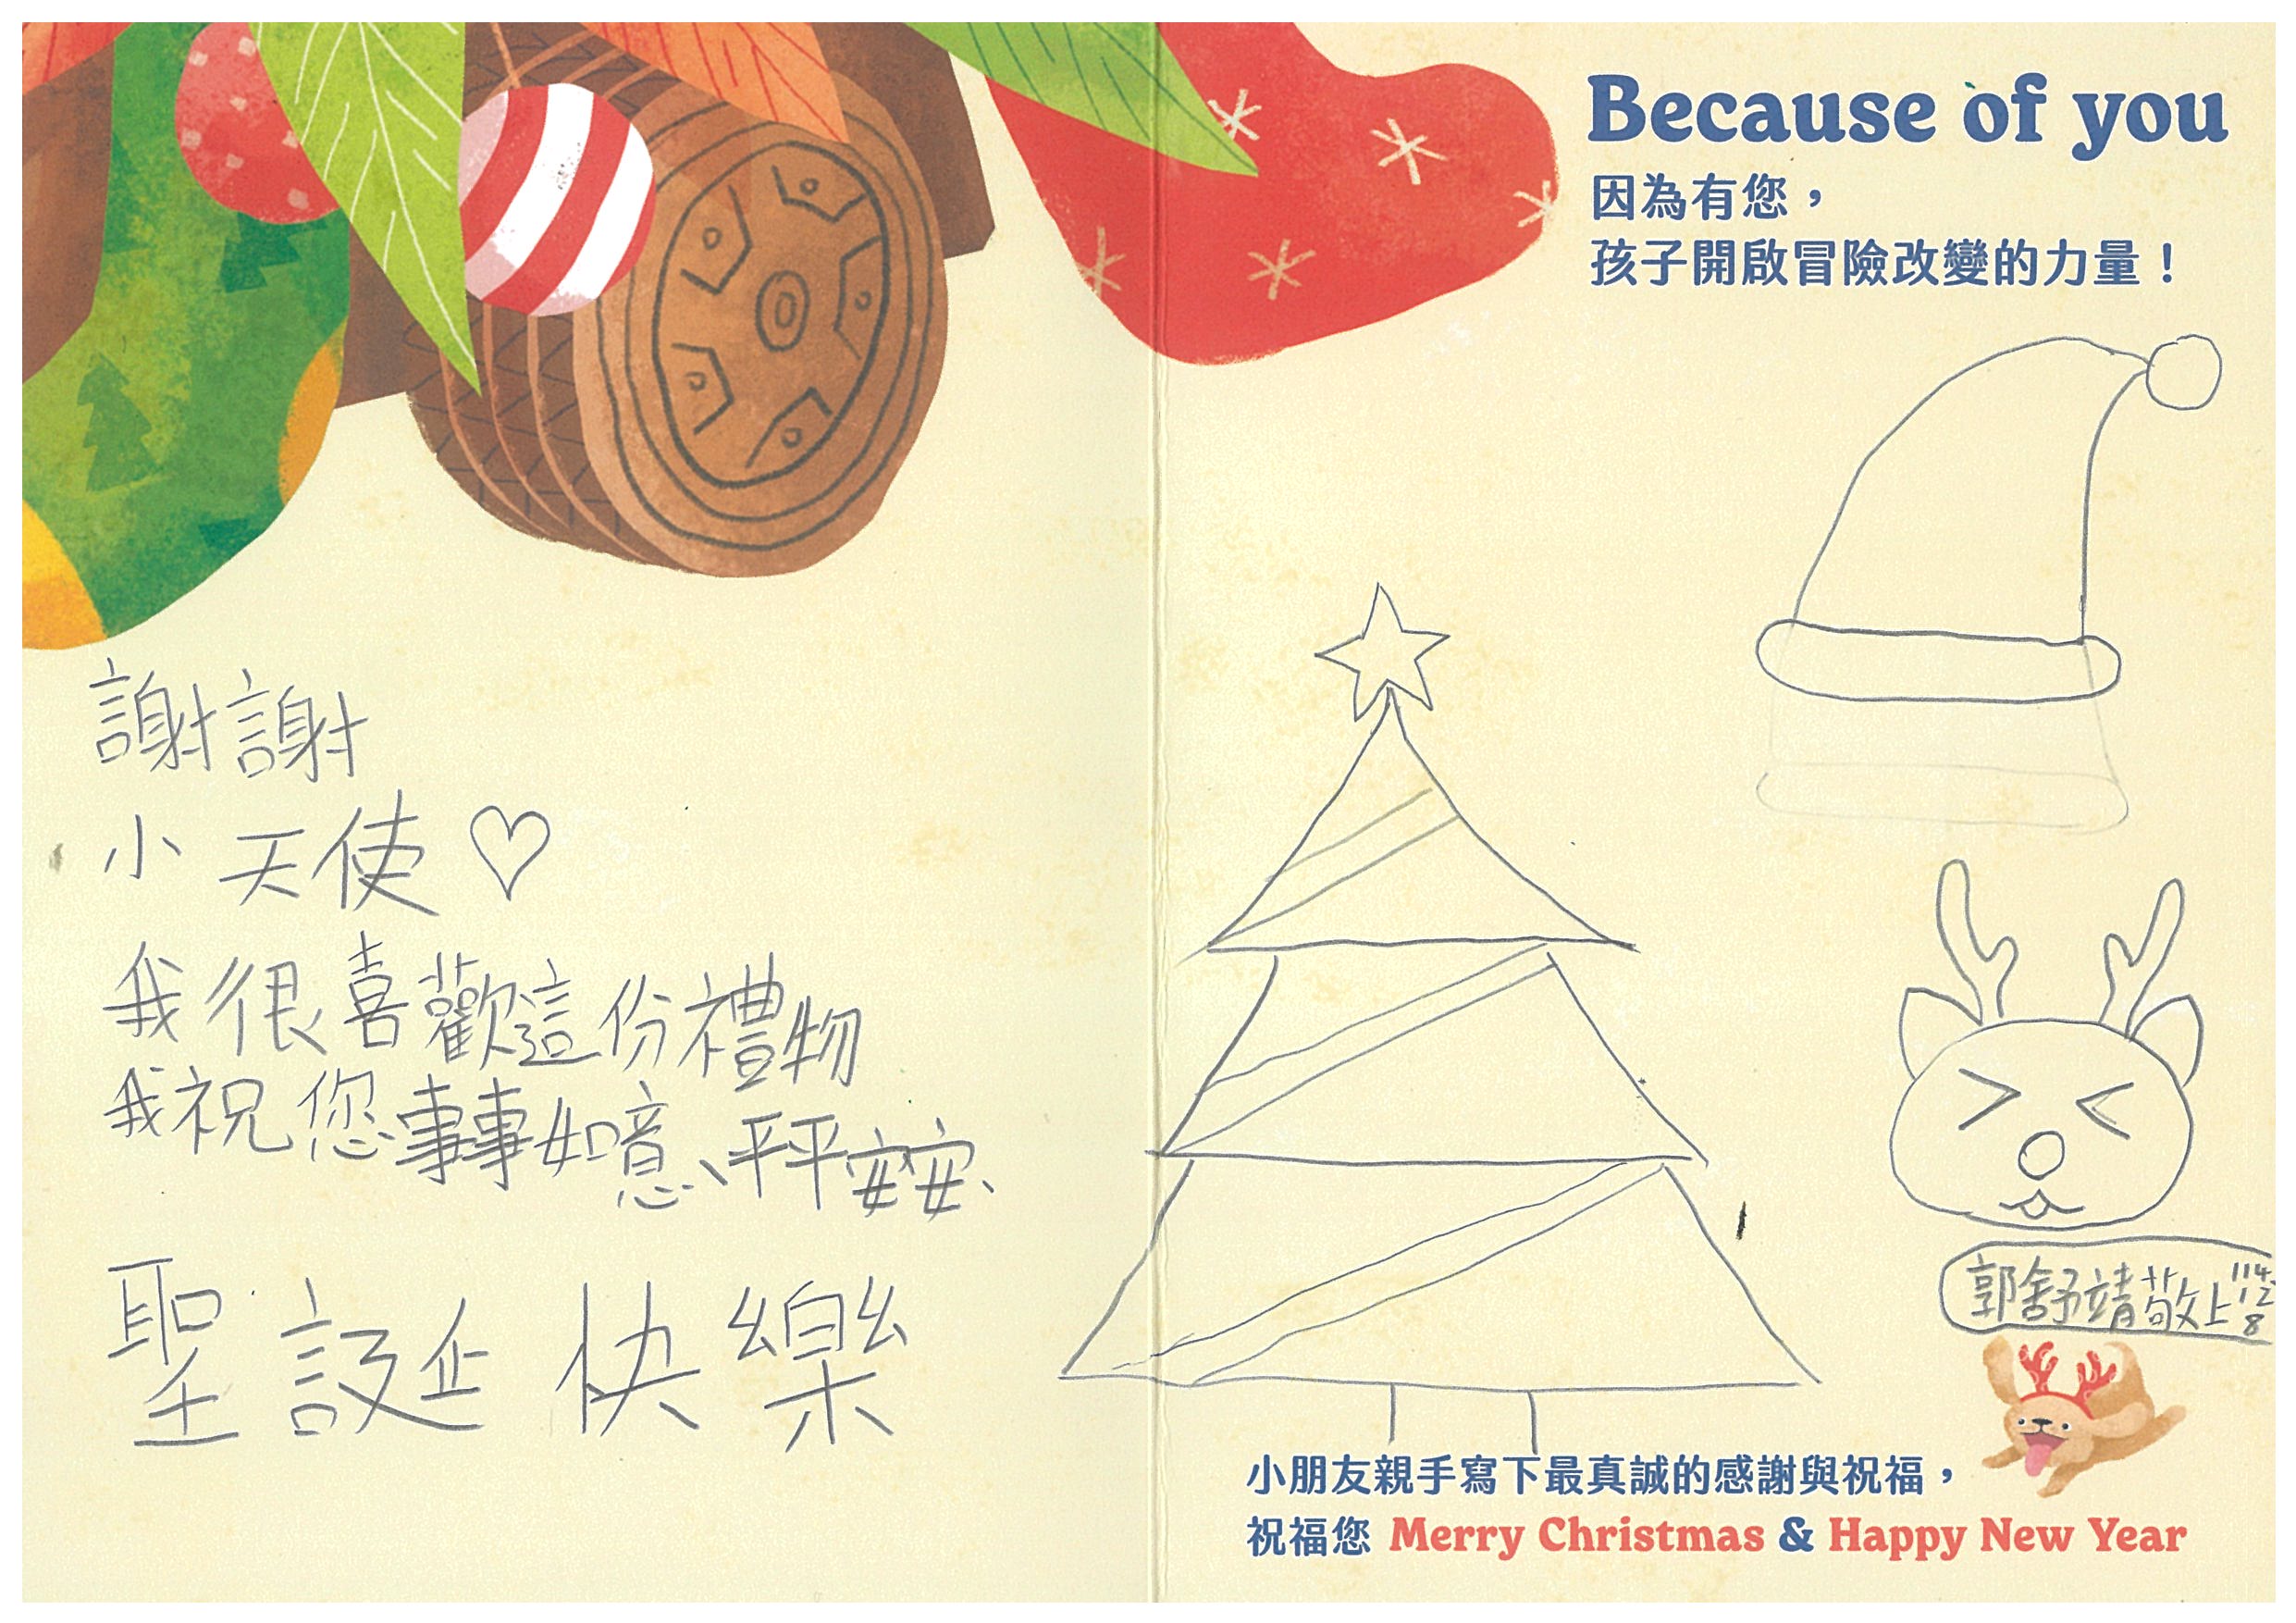 謝謝
小天使♡
我很喜歡這份禮物
我祝您事事如意、平平安安、
聖誕快樂
Because of you
因為有您，
孩子開啟冒險改變的力量！
郭舒靖敬上 114.12 8
小朋友親手寫下最真誠的感謝與祝福，
祝福您 Merry Christmas & Happy New Year